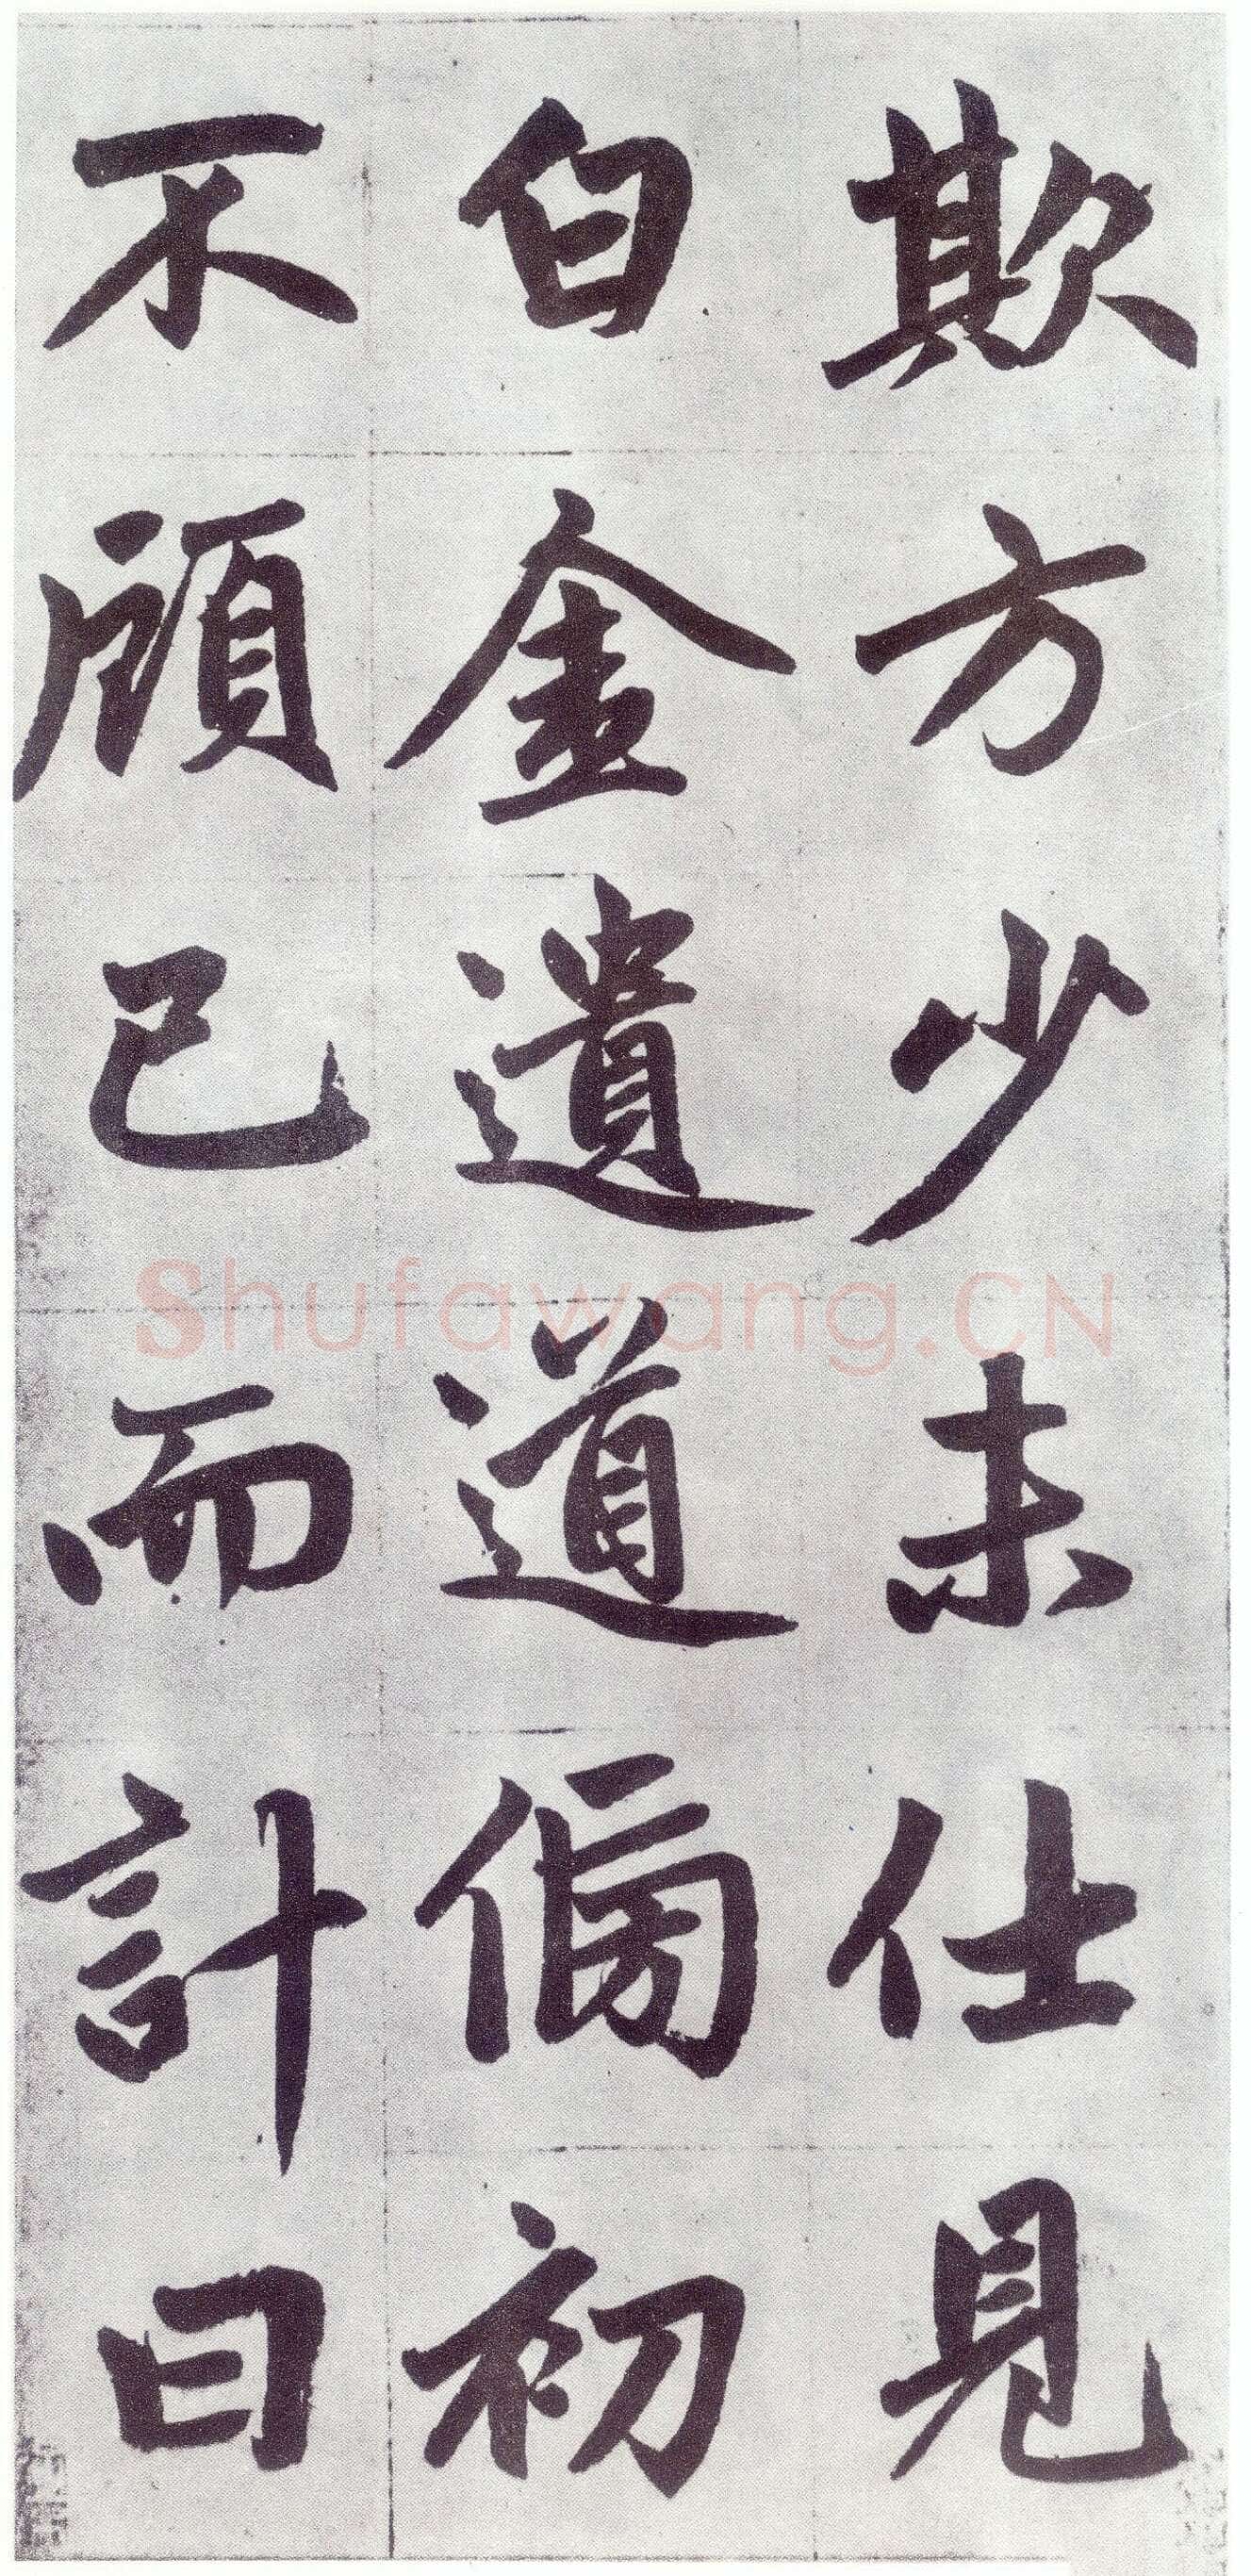 欺方少未仕見
白金遺道傍初
不顧已而計曰
Shufawang.CN